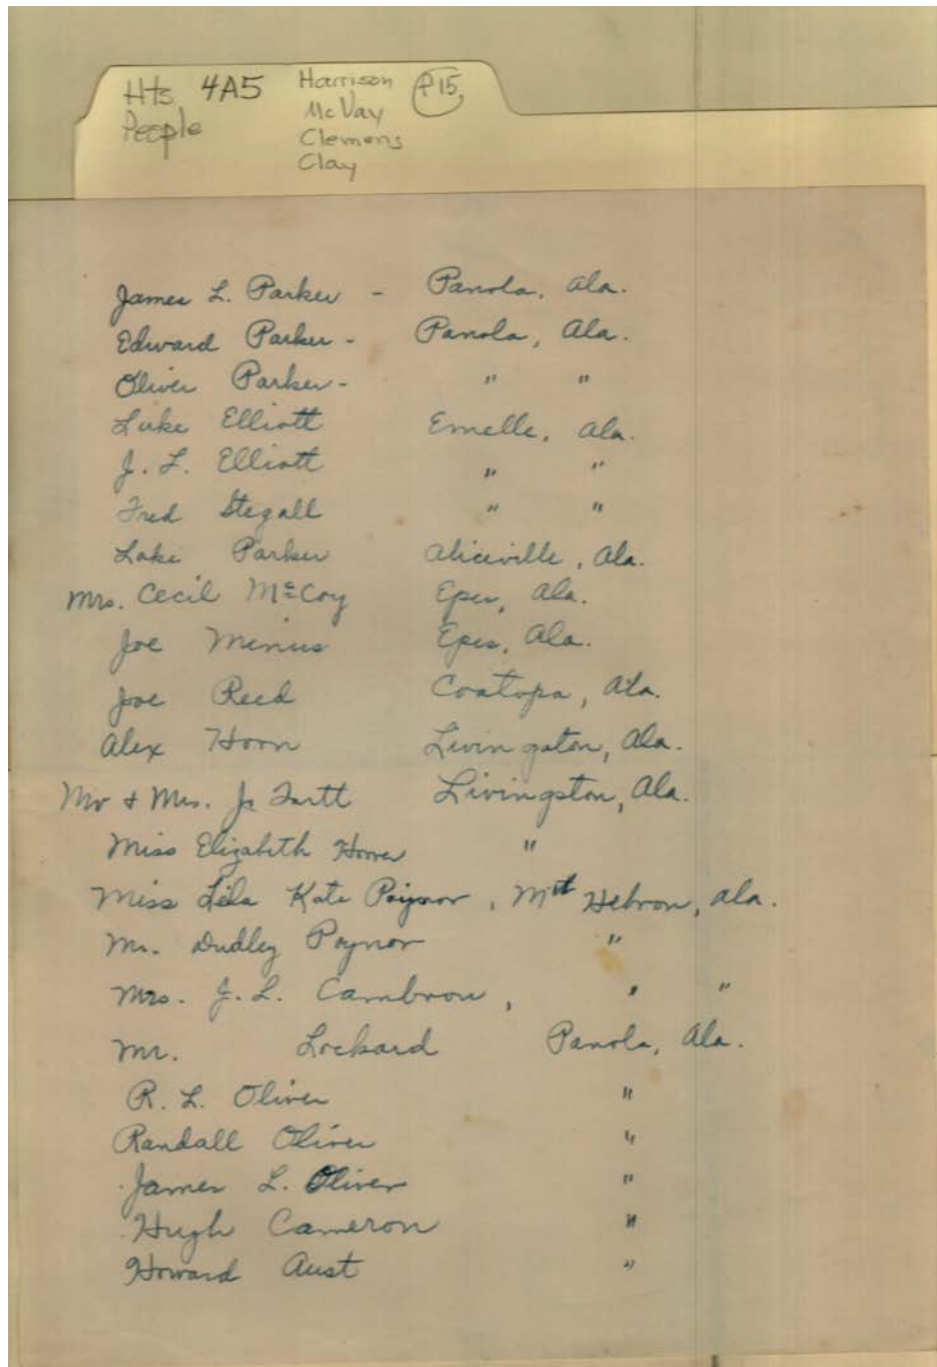 Hts 4A5 Harrison P15
People McVay
Clemens
Clay
James L. Parker - Panola, Ala.
Edward Parker - Panola, Ala.
Oliver Parker - " "
Luke Elliott Emelle, Ala.
J. L. Elliott " "
Fred Stegall " "
Lake Parker Aliceville, Ala.
Mrs. Cecil McCoy Epes, Ala.
Joe Minus Epes, Ala.
Joe Reed Coatopa, Ala.
Alex Horn Livingston, Ala.
Mr & Mrs. Jr Tartt Livingston, Ala.
Miss Elizabeth "
Miss Lila Kate Poynor, Mt Hebron, Ala.
Mr. Dudley Poynor "
Mrs. J. L. Cambron, " "
Mr. Lockard Panola, Ala.
R. L. Oliver "
Randall Oliver "
James L. Oliver "
Hugh Cameron "
Howard Aust "